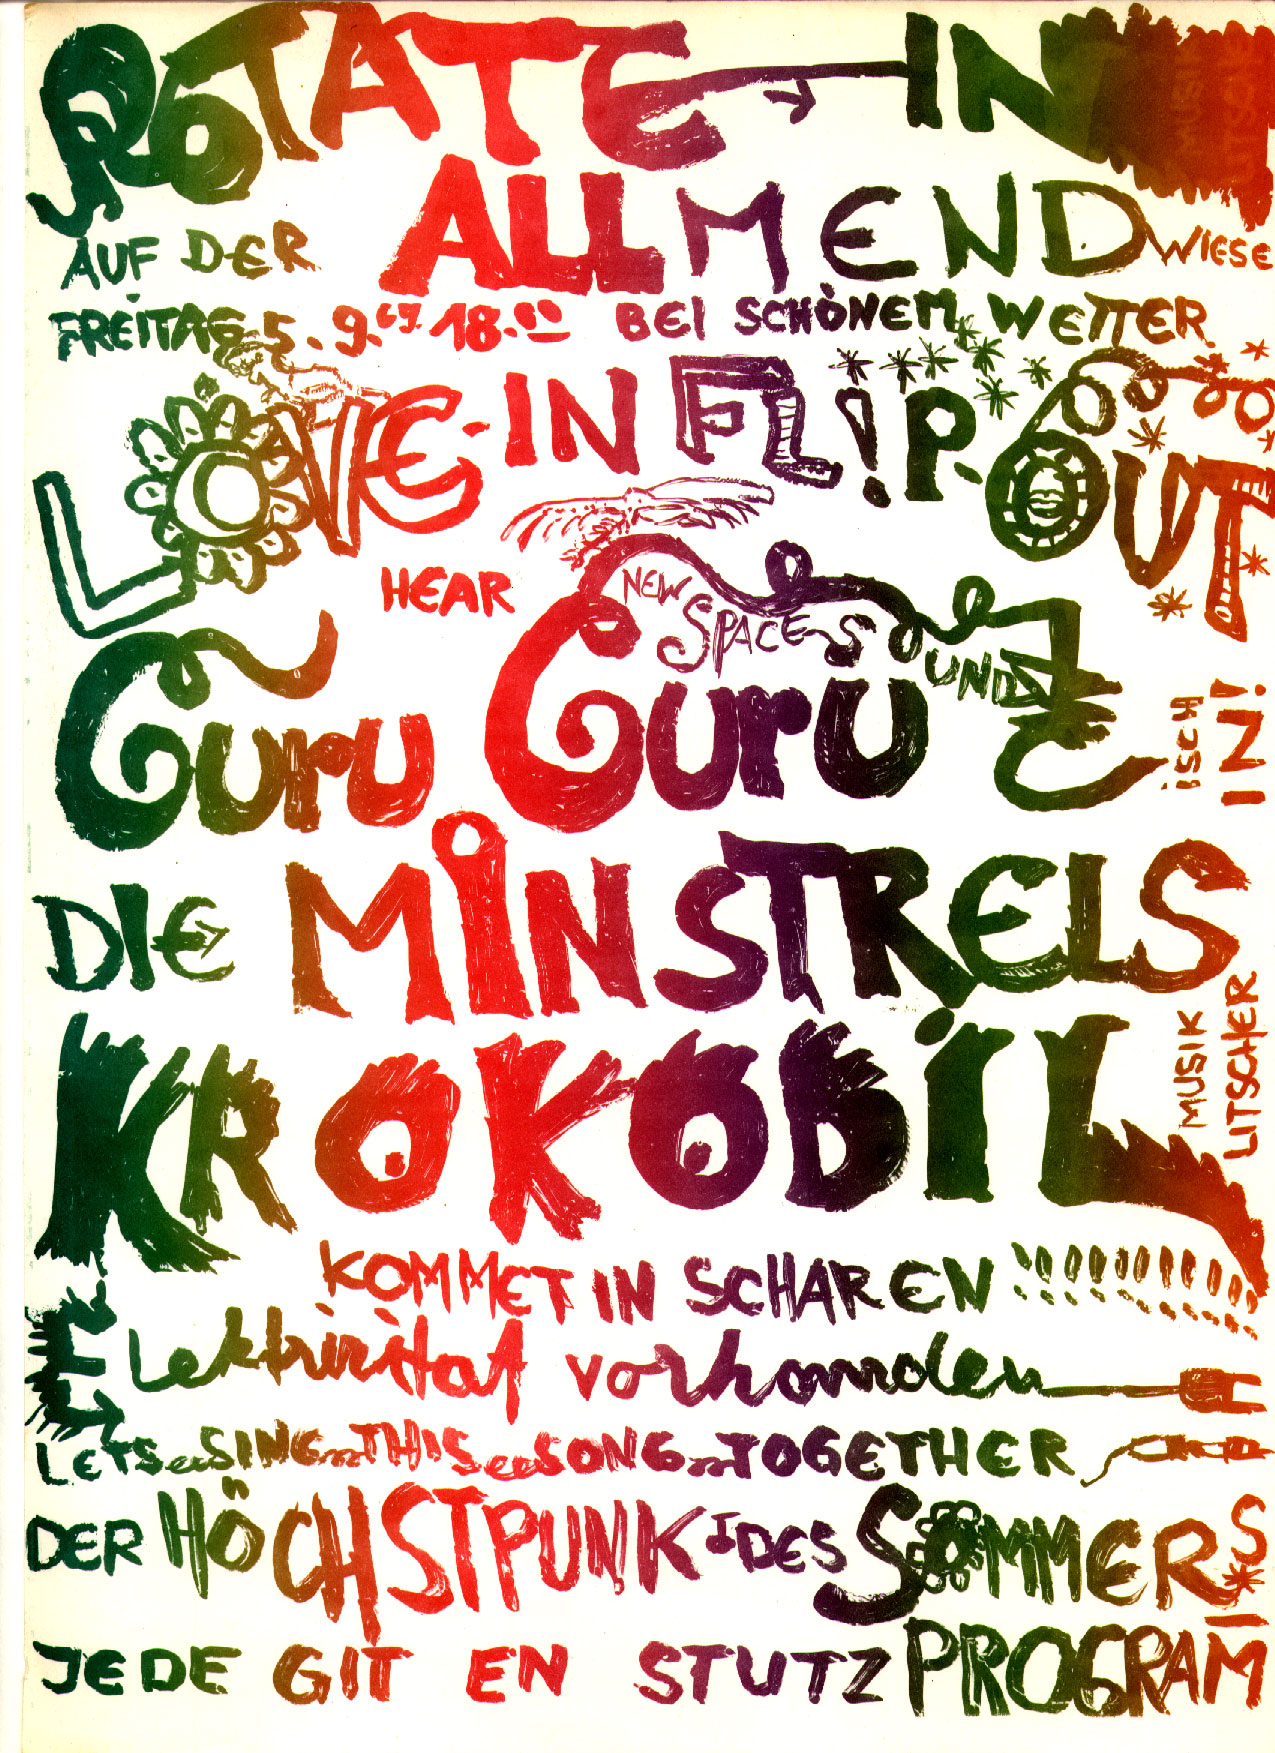 ROTATE-IN
AUF DER ALLMEND WIESE
FREITAG 5.9.69. 18.00 BEI SCHÖNEM WETTER
LOVE-IN FL!P-OUT
HEAR NEW SPACE-SOUNDS
GURU GURU
ISCH IN!
DIE MINSTRELS
KROKODIL
MUSIK LITSCHER
KOMMET IN SCHAREN !!!!!!!!!!!
Lektrirität vorhanden
LETS SING THIS SONG TOGETHER
DER HÖCHSTPUNKT DES SOMMERS
JEDE GIT EN STUTZ PROGRAM